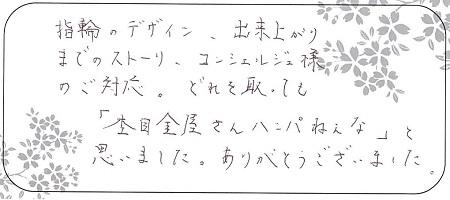 指輪のデザイン、出来上がり
までのストーリ、コンシェルジュ様
のご対応。どれを取っても
「杢目金屋さんハンパねぇな」と
思いました。ありがとうございました。